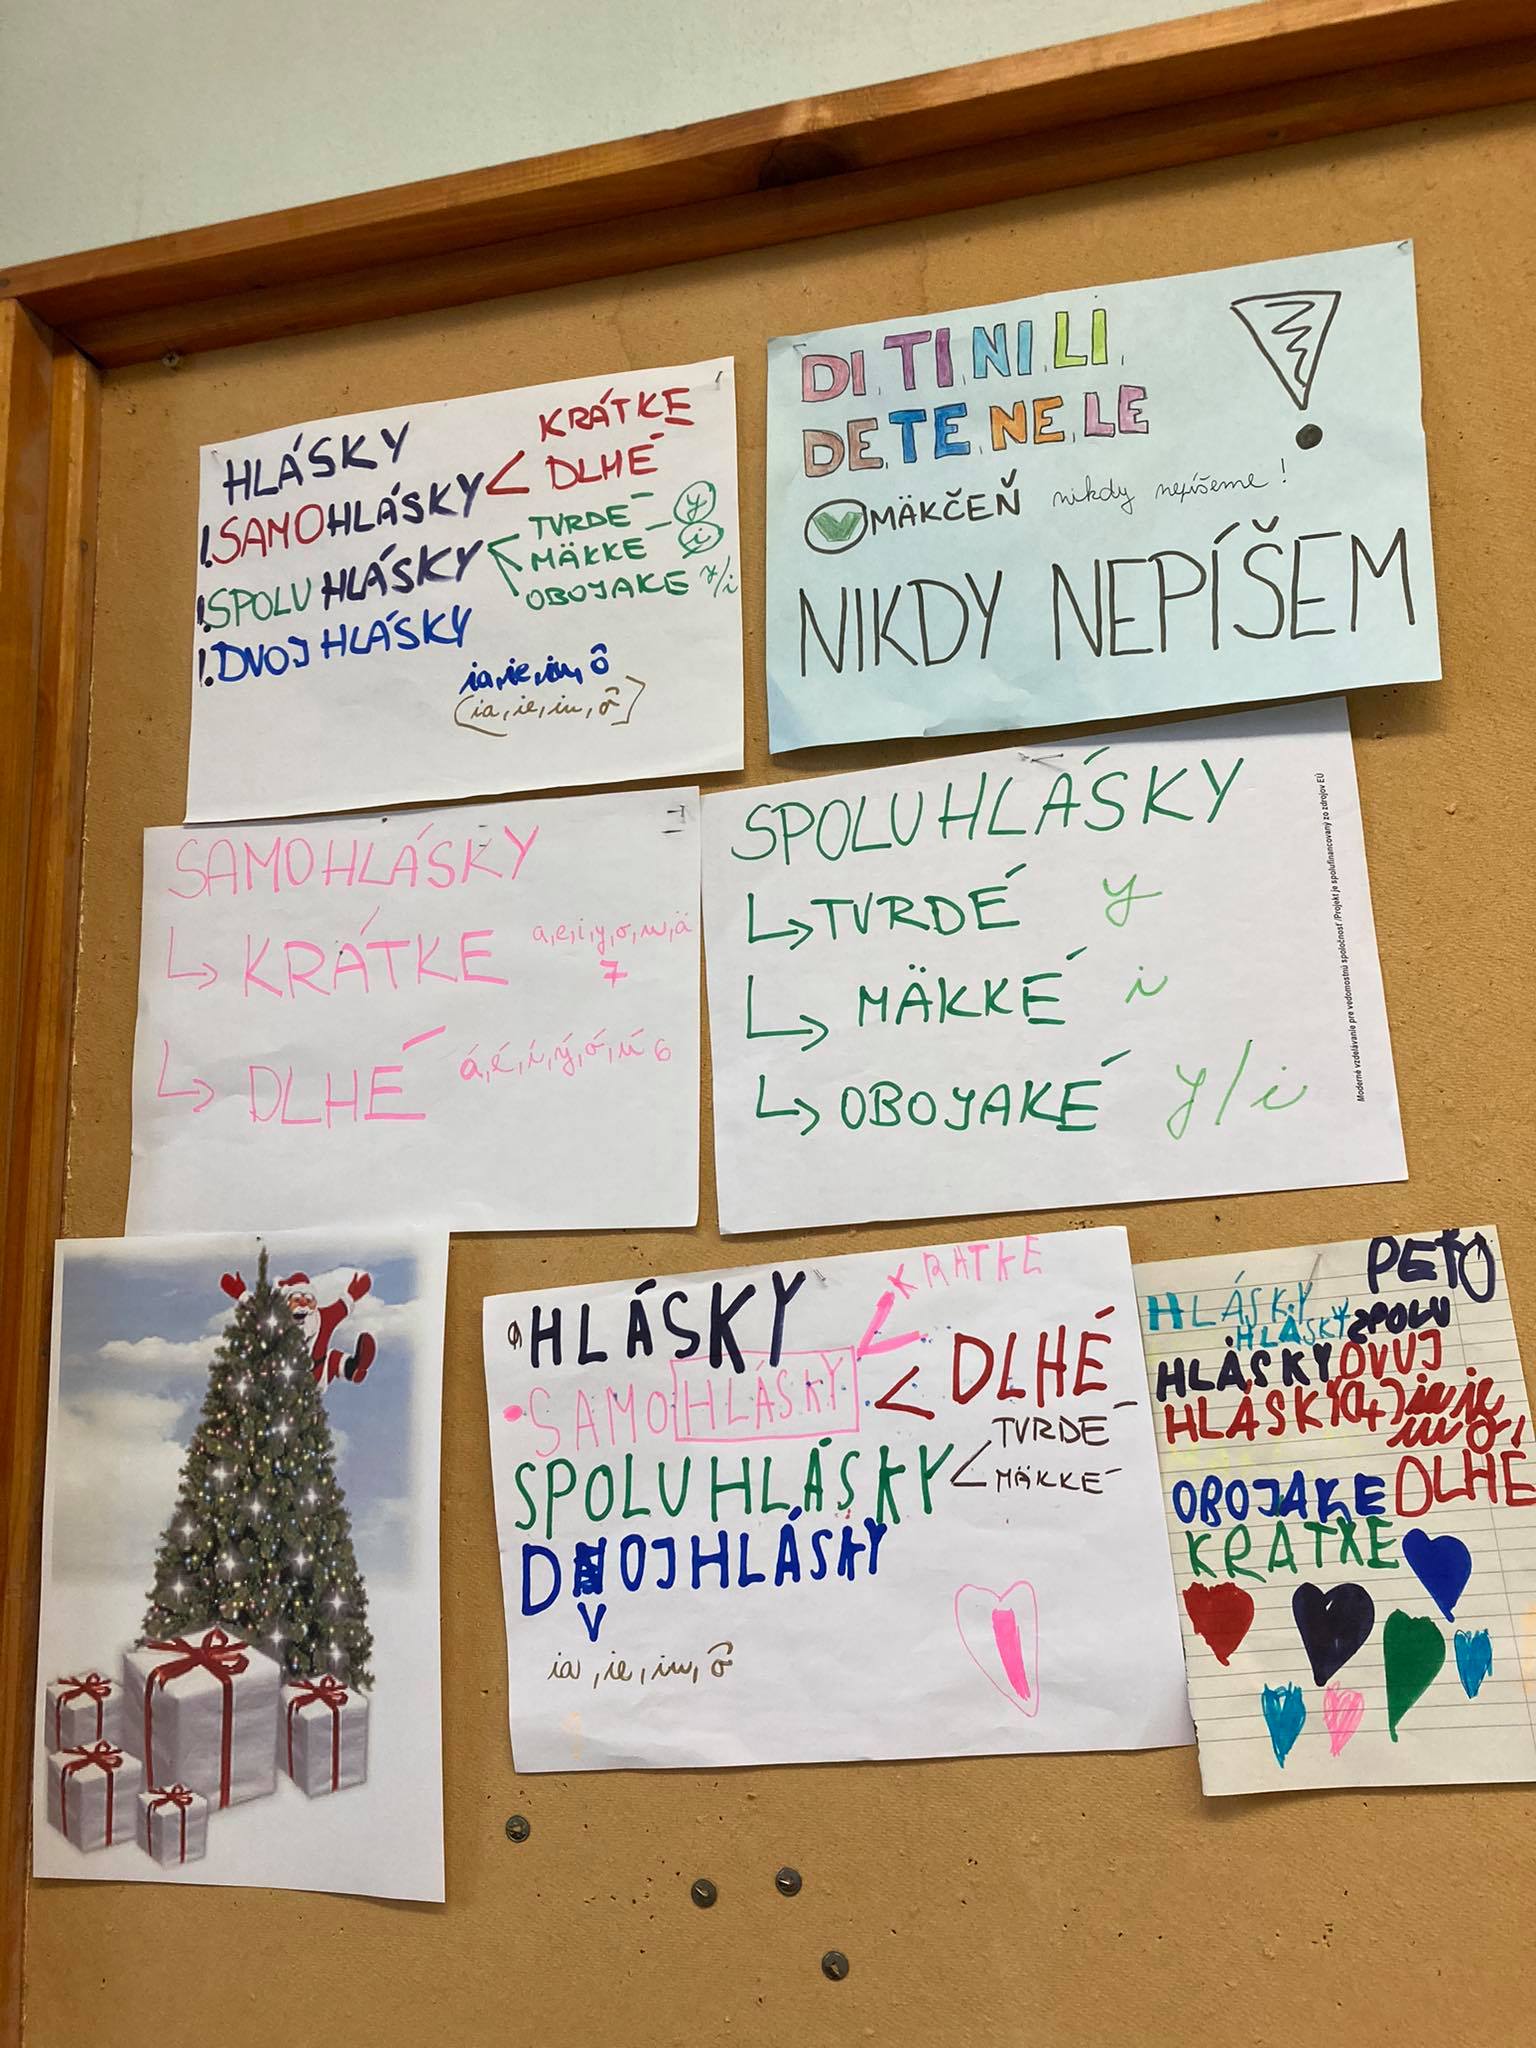 HLÁSKY
KRÁTKE
!SAMOHLÁSKY < DLHÉ
TVRDÉ - y
!SPOLUHLÁSKY MÄKKÉ - i
OBOJAKÉ y/i
!DVOJHLÁSKY
ia, ie, iu, ô
(ia, ie, iu, ô)
DI, TI, NI, LI,
DE, TE, NE, LE
MÄKČEŇ nikdy nepíšeme!
NIKDY NEPÍŠEM
SAMOHLÁSKY
KRÁTKE a, e, i, y, o, u, ä
7
DLHÉ á, é, í, ý, ó, ú 6
SPOLUHLÁSKY
TVRDÉ y
MÄKKÉ i
OBOJAKÉ y/i
Moderné vzdelávanie pre vedomostnú spoločnosť /Projekt je spolufinancovaný zo zdrojov EÚ
KRATKE
HLÁSKY
DLHÉ
SAMOHLÁSKY
TVRDÉ
SPOLUHLÁSKY < MÄKKÉ
DVOJHLÁSKY
V
ia, ie, iu, ô
PEŤO
HLÁSKY
HLASKY SPOLU
HLÁSKY DVUJ
HLÁSKY (4)
OBOJAKE DLHÉ
KRATKE